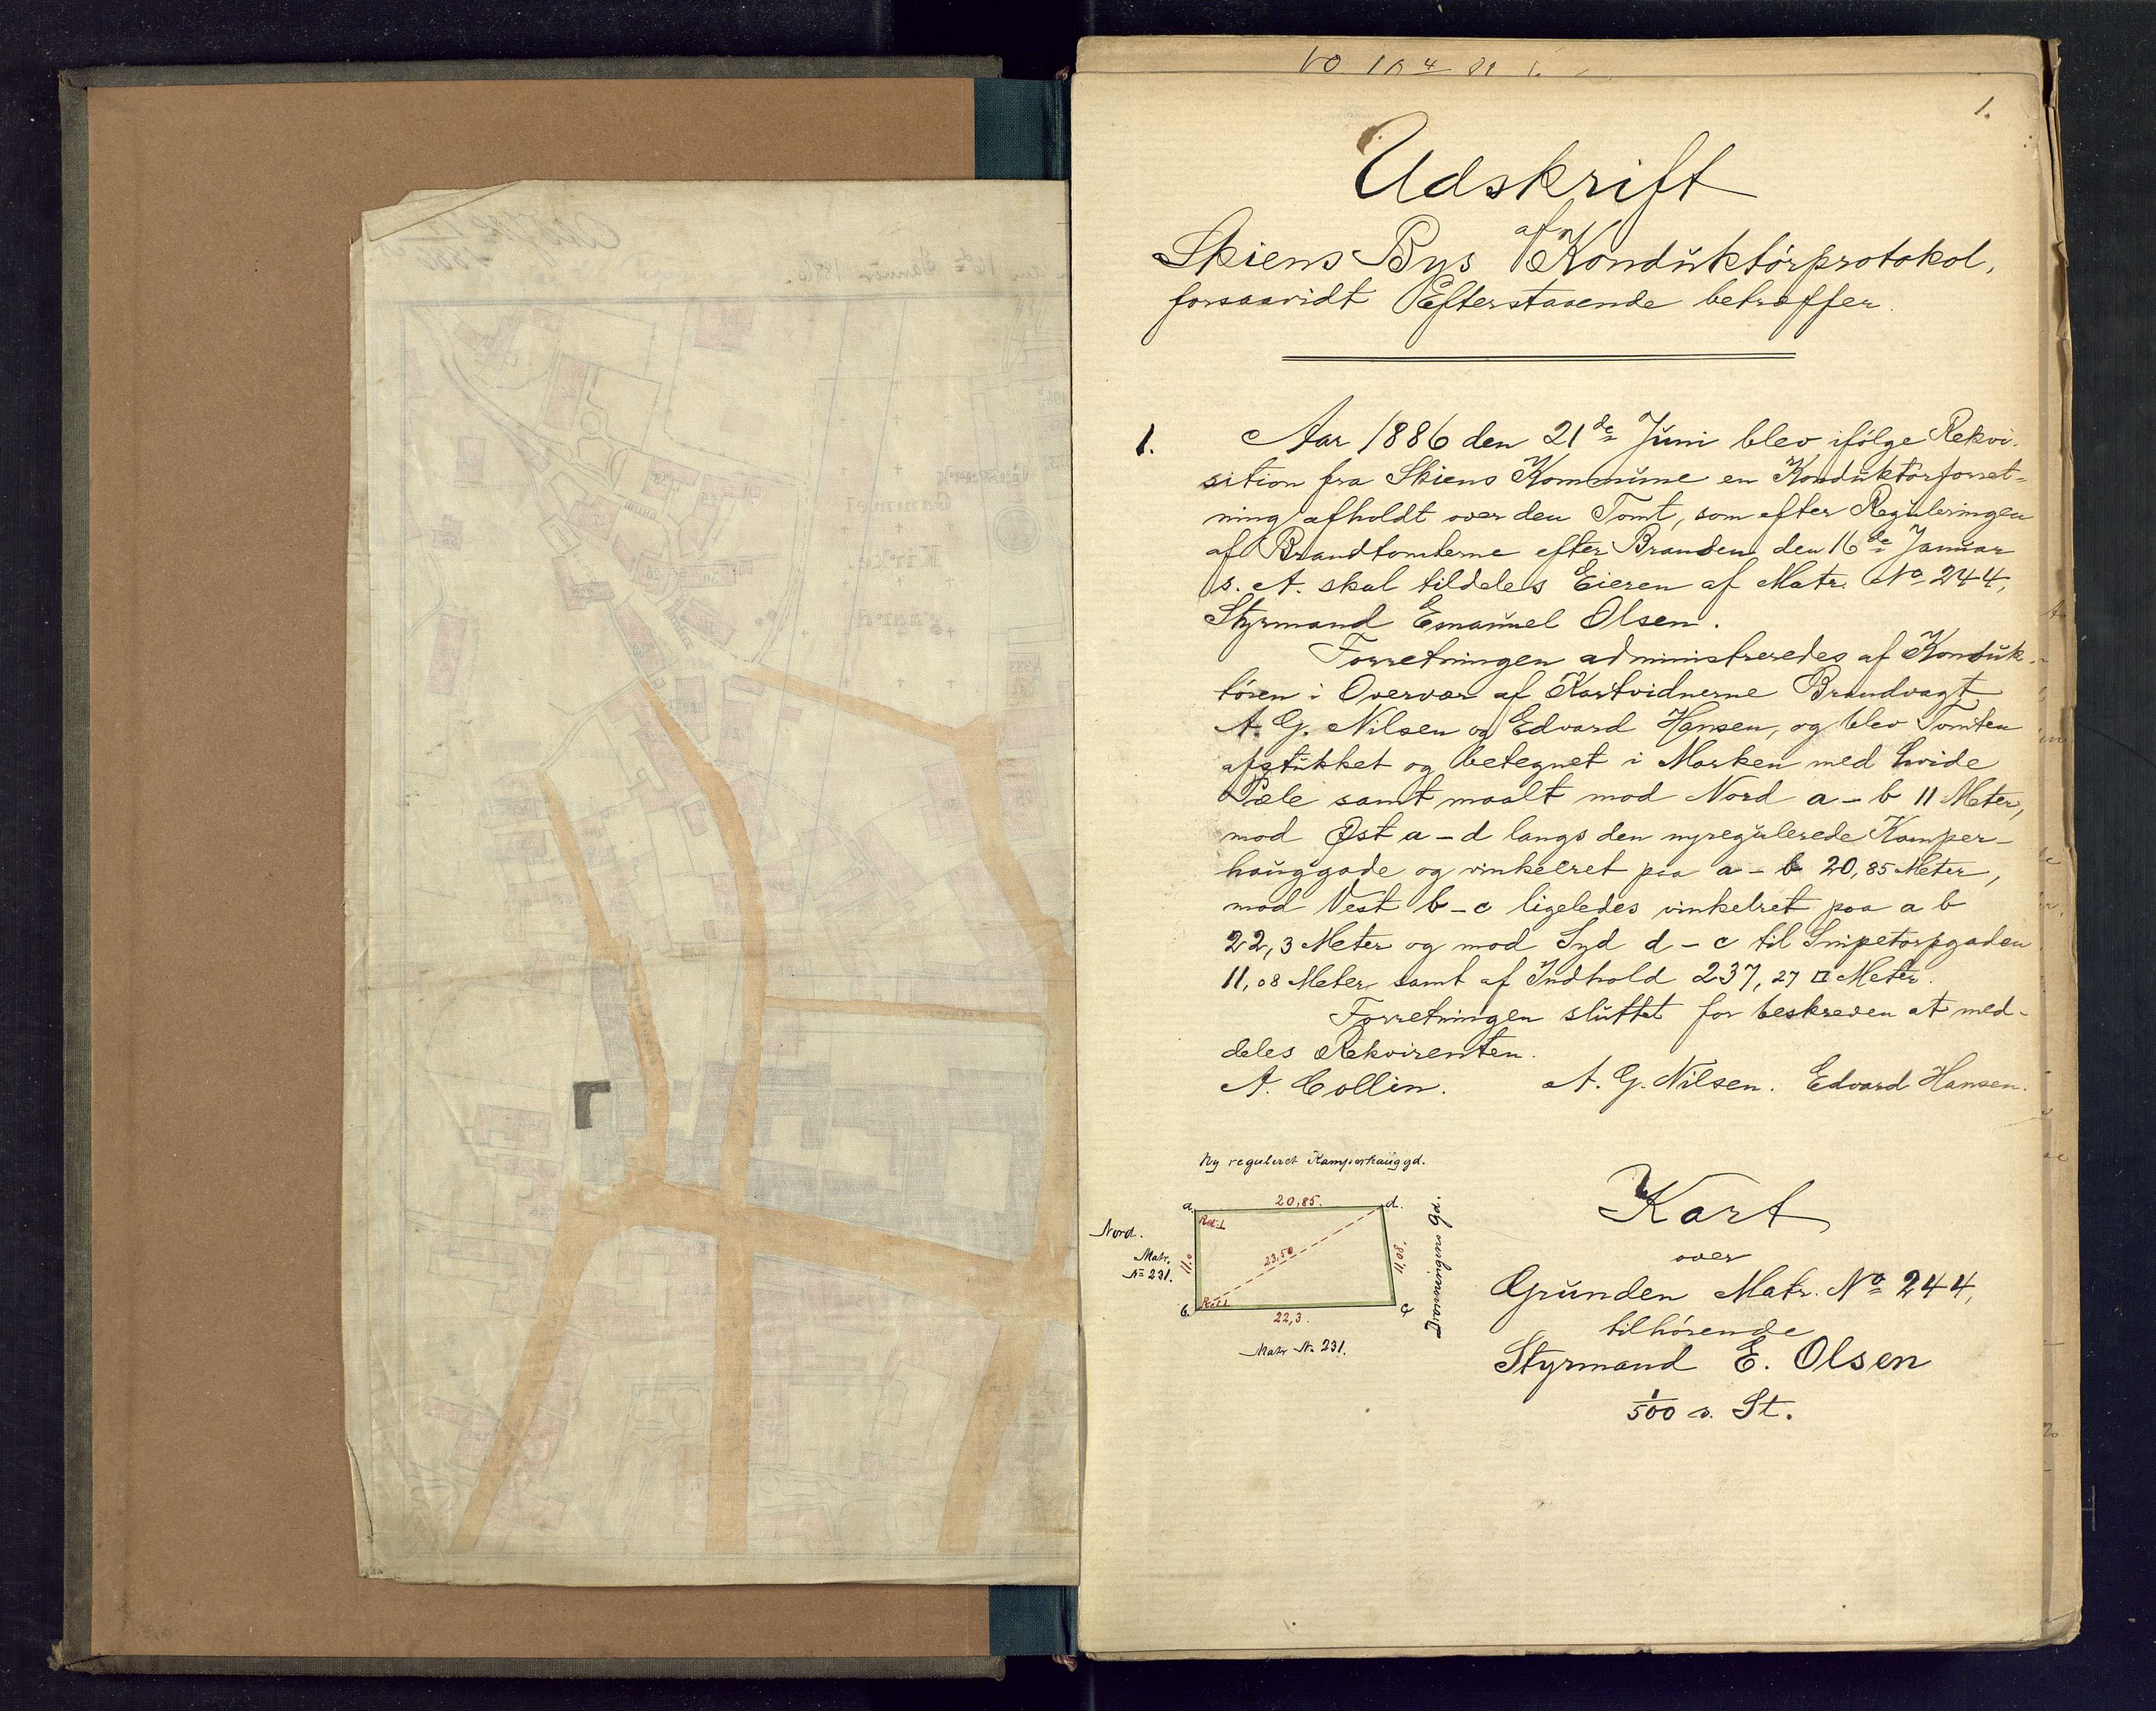 1.
Udskrift
af
Skiens Bys Konduktörprotokol,
forsaavidt Efterstaaende betræffer.
1. Aar 1886 den 21de Juni blev ifölge Rekvi-
sition fra Skiens Kommune en Konduktörforret-
ning afholdt over den Tomt, som efter Reguleringen
af Brandtomterne efter Branden den 16de Januar
s. A. skal tildeles Eieren af Matr. No 244,
Styrmand Emanuel Olsen.
Forretningen administreredes af Konduk-
tören i Overvær af Kartvidnerne Brandvagt
A. G. Nilsen og Edvard Hansen, og blev Tomten
afstukket og betegnet i Marken med hvide
Pæle samt maalt mod Nord a - b 11 Meter,
mod Øst a - d langs den nyregulerede Kamper-
hauggade og vinkelret paa a - b 20,85 Meter,
mod Vest b - c ligeledes vinkelret paa a b
22,3 Meter og mod Syd d - c til Snipetorpgaden
11,08 Meter samt af Indhold 237,27 □ Meter.
Forretningen sluttet for beskreven at med-
deles Rekvirenten.
A. Collin. A. G. Nilsen. Edvard Hansen.
Ny reguleret Kamperhauggd.
a. 20,85. d.
Ret L
Nord.
Matr.
No 231.
11.0
23,50
11,08.
Dronningens Gd.
b. Ret L
22,3. c
Matr No 231.
Kart
over
Grunden Matr. No 244,
tilhörende
Styrmand E. Olsen
1/500 n. St.
Gammel
Kirke-
gaard